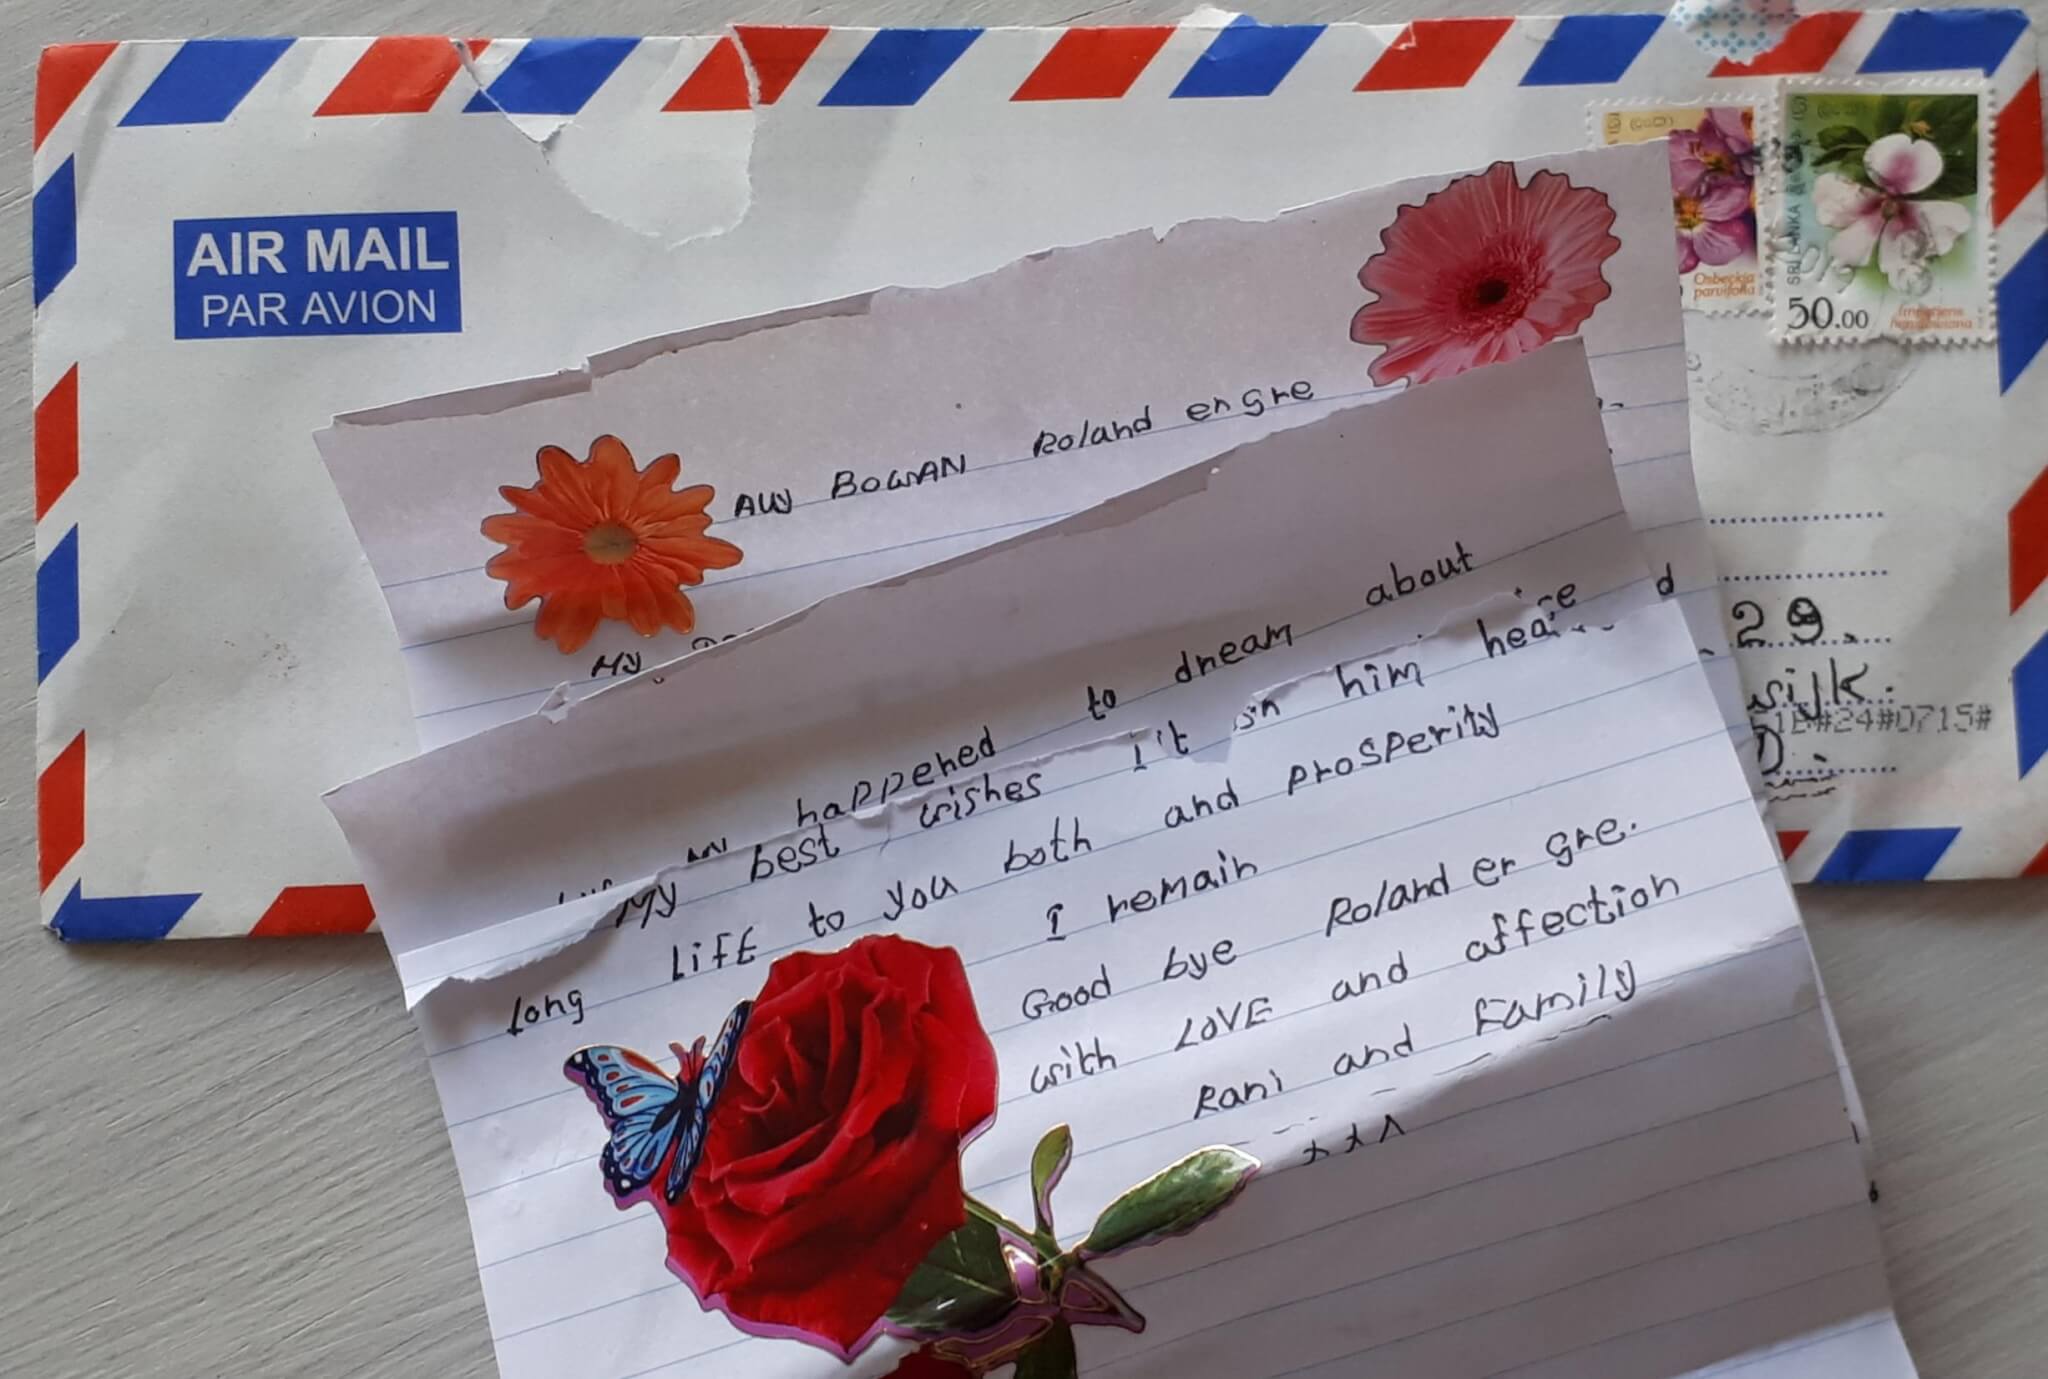 AIR MAIL
PAR AVION
SRI LANKA
Osbeckia
parvifolia
50.00
29.
sijk.
1E#24#0715#
D.
AUY BOWAN Roland en gre
My
happened to dream about
My best wishes him
long LiFE to you both and prosperity
I remain
Good bye Roland en gre.
with LOVE and affection
Rani and Family